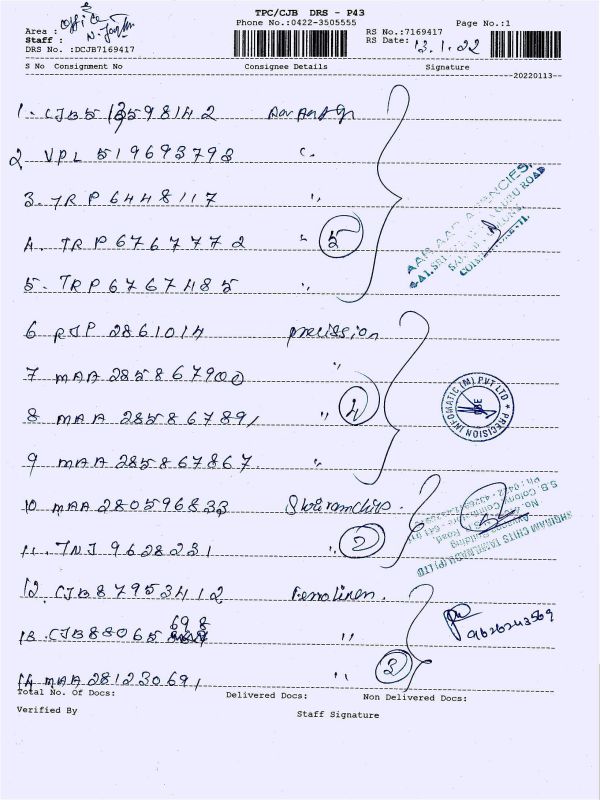 TPC/CJB DRS - P43
Phone No.:0422-3505555
Page No.:1
Area : Office
Staff :
DRS No. :DCJB7169417
RS No.:7169417
RS Date: 13.1.22
S No Consignment No Consignee Details Signature
20220113
1. CJB513598142
2 VPL 519693793 "
3. TRP 6448117 "
4. TRP 6767772 " 5
5. TRP 6767485 "
6 PJP 2861014 precission
7 MAA 285867900 "
8 MAA 285867891 " 4
9 MAA 285867867. "
10. MAA 280596833
11. TNJ 9628231 " 2
12. CJB 87953412
13. CJB88065 698 "
14 MAA 281230691 " 3
AAR AAR AGENCIES,
PRECISION INFOMATIC (M) PVT LTD
SHRIRAM CHITS TAMILNADU (P) LTD
9626243569
Total No. Of Docs: Delivered Docs: Non Delivered Docs:
Verified By Staff Signature